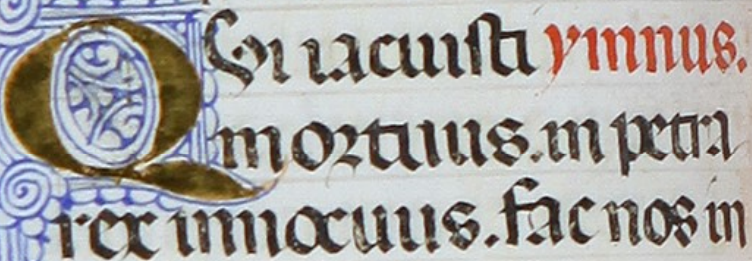 QUi iacuisti ymnus.
mortuus. in petra
rex innocuus. fac nos in